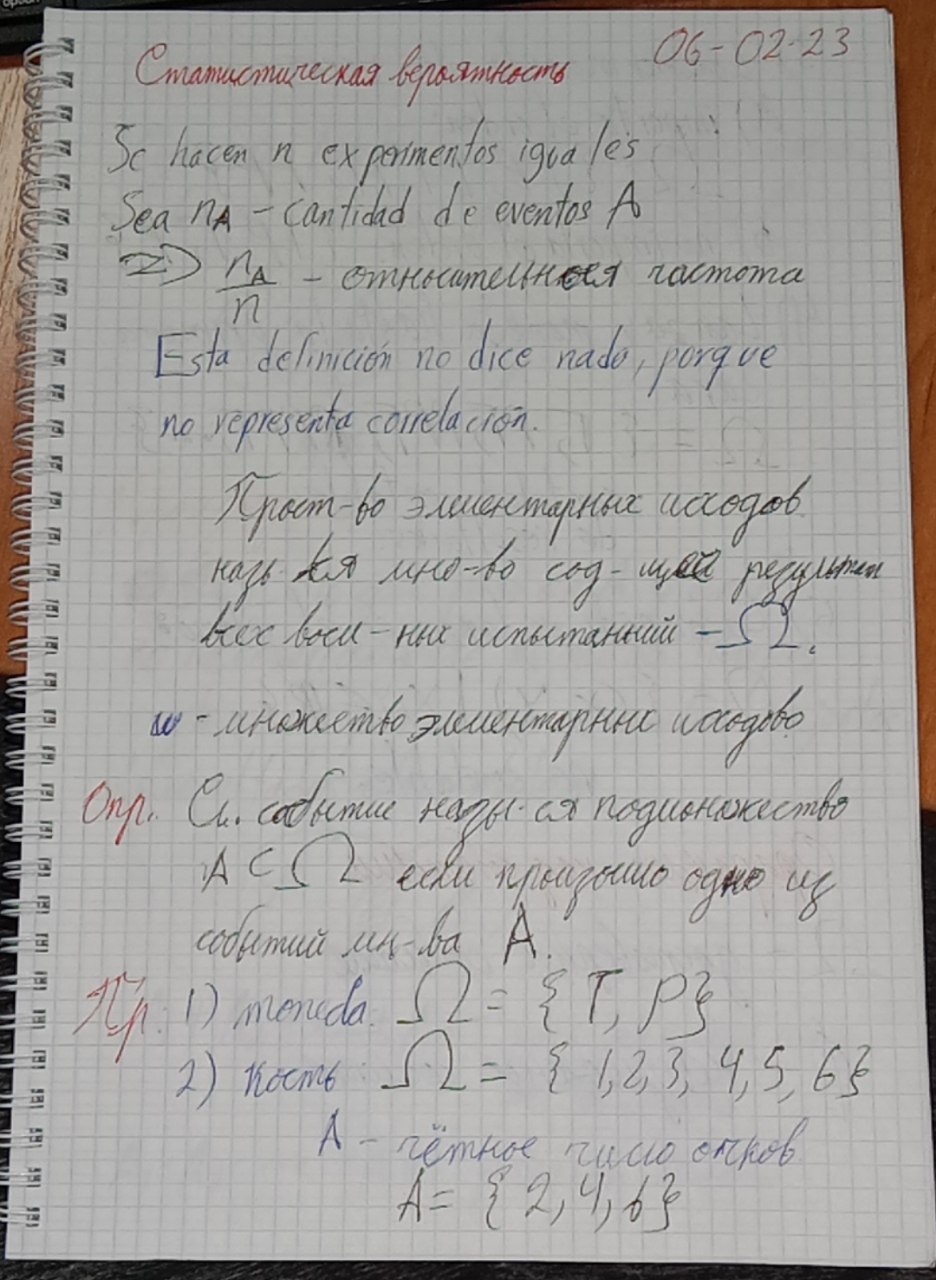 Статистическая вероятность 06-02-23
Se hacen n experimentos iguales
Sea nA - cantidad de eventos A
=> nA/n - относительная частота
Esta definición no dice nada, porque
no representa correlación.
Прост-во элементарных исходов
назы-ся мно-во сод-щее результат
всех возм-ных испытанний - Ω.
ω - множество элементарных исходово
Опр. Сл. событие назы-ся подмножество
A ⊂ Ω если произошло одно из
событий мн-ва A.
Пр. 1) moneda. Ω = {T, P}
2) кость: Ω = {1,2,3,4,5,6}
A - чётное число очков
A = {2,4,6}